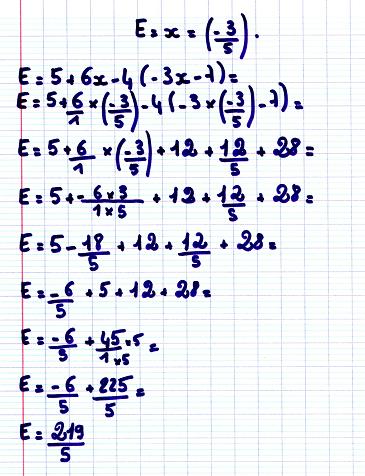 E = x = (-3/5).
E = 5 + 6x - 4 (-3x - 7) =
E = 5 + 6/1 × (-3/5) - 4 (-3 × (-3/5) - 7) =
E = 5 + 6/1 × (-3/5) + 12 + 12/5 + 28 =
E = 5 + -6×3/1×5 + 12 + 12/5 + 28 =
E = 5 - 18/5 + 12 + 12/5 + 28 =
E = -6/5 + 5 + 12 + 28 =
E = -6/5 + 45×5/1×5 =
E = -6/5 + 225/5 =
E = 219/5